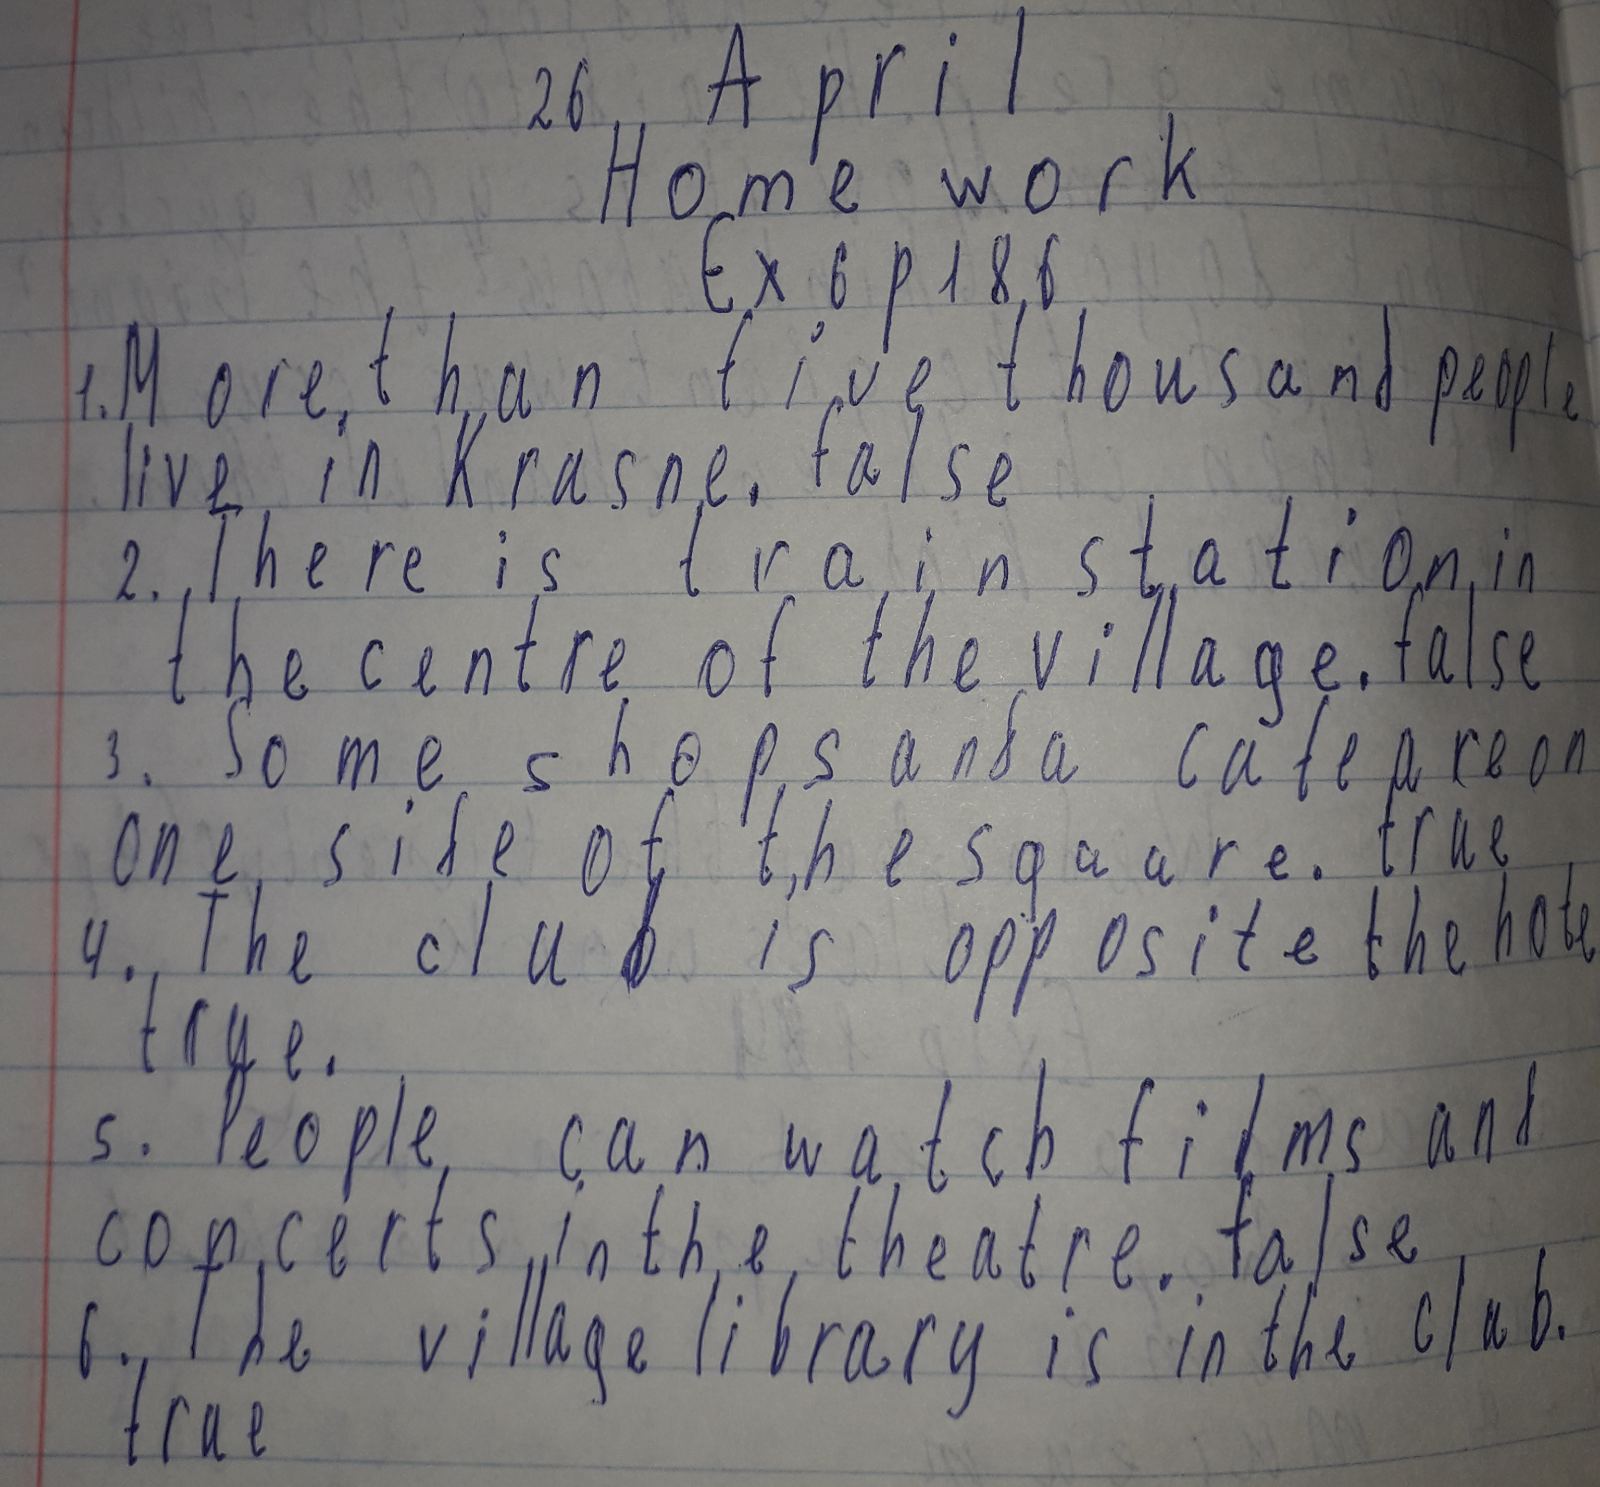 26 April
Home work
Ex 6 p 186
1. More than five thousand people
live in Krasne. false
2. There is train station in
the centre of the village. false
3. Some shops and a cafe are on
one side of the square. true
4. The club is opposite the hote
true.
5. People can watch films and
concerts in the theatre. false
6. The village library is in the club.
true